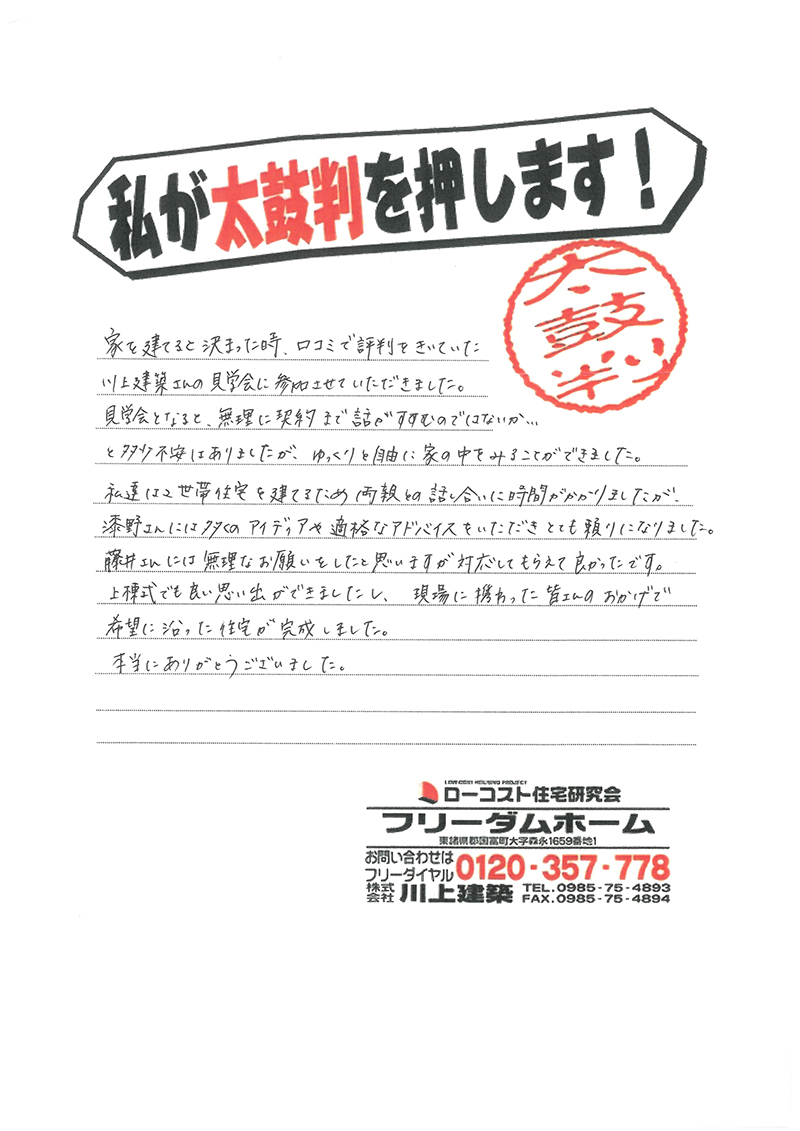 私が太鼓判を押します！
太鼓判
家を建てると決まった時、口コミで評判をきいていた
川上建築さんの見学会に参加させていただきました。
見学会となると、無理に契約まで話がすすむのではないか…
と多少不安はありましたが、ゆっくりと自由に家の中をみることができました。
私達は2世帯住宅を建てるため両親との話し合いに時間がかかりましたが、
漆野さんには多くのアイディアや適格なアドバイスをいただきとても頼りになりました。
藤井さんには無理なお願いをしたと思いますが対応してもらえて良かったです。
上棟式でも良い思い出ができましたし、現場に携わった皆さんのおかげで
希望に沿った住宅が完成しました。
本当にありがとうございました。
LOW-COST HOUSING PROJECT
ローコスト住宅研究会
フリーダムホーム
東諸県郡国富町大字森永1659番地1
お問い合わせは
フリーダイヤル 0120-357-778
株式会社 川上建築 TEL.0985-75-4893
FAX.0985-75-4894